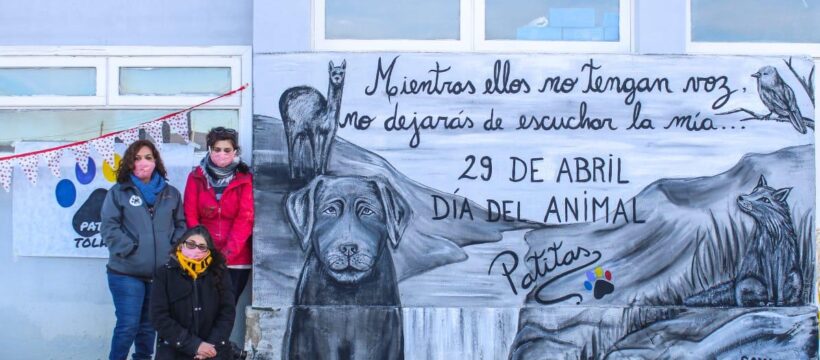 Mientras ellos no tengan voz,
no dejarás de escuchar la mía...
29 DE ABRIL
DÍA DEL ANIMAL
Patitas